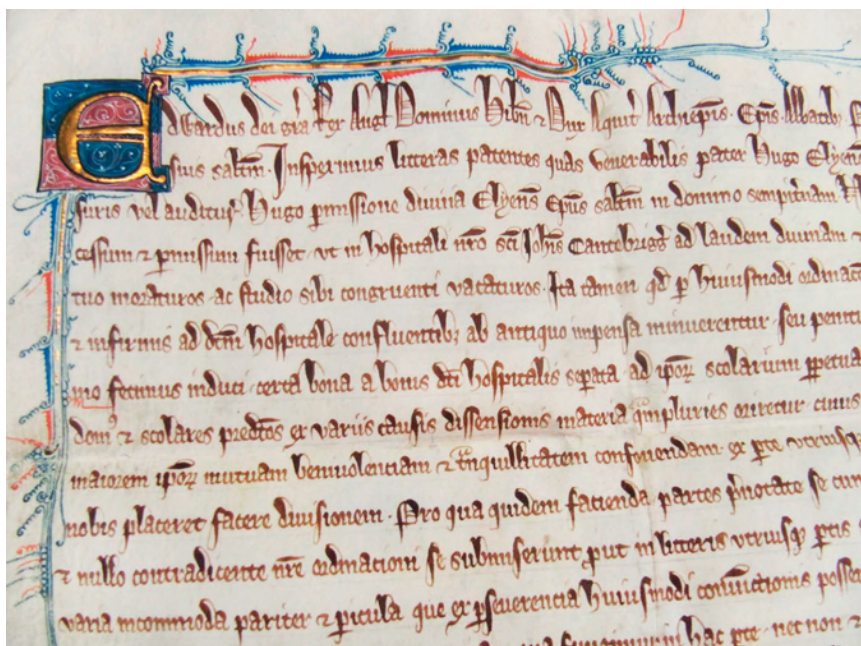 Edwardus dei gr̄a Rex Angl̄ Dominus Hib̄n ⁊ Dux Aquit̄ Archiep̄is · Ep̄is · Abbatib;
suis sal̄tm · Inspeximus litteras patentes quas venerabilis pater Hugo Elyen̄s
suris vel audituris · Hugo p̱missione divina Elyen̄s Ep̄us sal̄tm in domino sempit̄nam
cessum ⁊ p̱missum fuisset · vt in hospitali nr̄o sc̄i Joh̄is Cantebrigḡ ad laudem divinam ⁊
tuo moraturos ac studio sibi congruenti vacaturos · Ita tamen qd̄ p̱ huiusmodi
⁊ infirmis ad dc̄m hospitale confluentib; ab antiquo impensa minuerentur · seu
mo fecimus induci · certa bona a bonis dc̄i hospitalis sep̱ata · ad ip̄oꝝ scolarium p̱petua
domꝰ ⁊ scolares predc̄os ex variis causis dissensionis materia q̄mpluries oriretur · cuius
maiorem ip̄oꝝ mutuam benivolenciam ⁊ t̄nquillitatem confovendam · ex p̱te vtriusq̱
nobis placeret facere divisionem · Pro qua quidem facienda partes p̄notate se
⁊ nullo contradicente nr̄e ordinacioni se submiserunt ꝓut in litteris vtriusq̱ p̱tis
varia incommoda pariter ⁊ p̱icula que ex p̱severencia huiusmodi convictionis
in hac p̱te · nec non ⁊